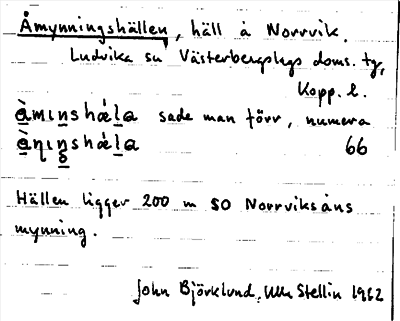 Åmynningshällen, häll å Norrvik.
Ludvika sn Västerbergslags doms. tg,
Kopp. l.
àmınshǽla sade man förr, numera
66
Hällen ligger 200 m SO Norrviksåns
mynning.
John Björklund, Stellin 1962